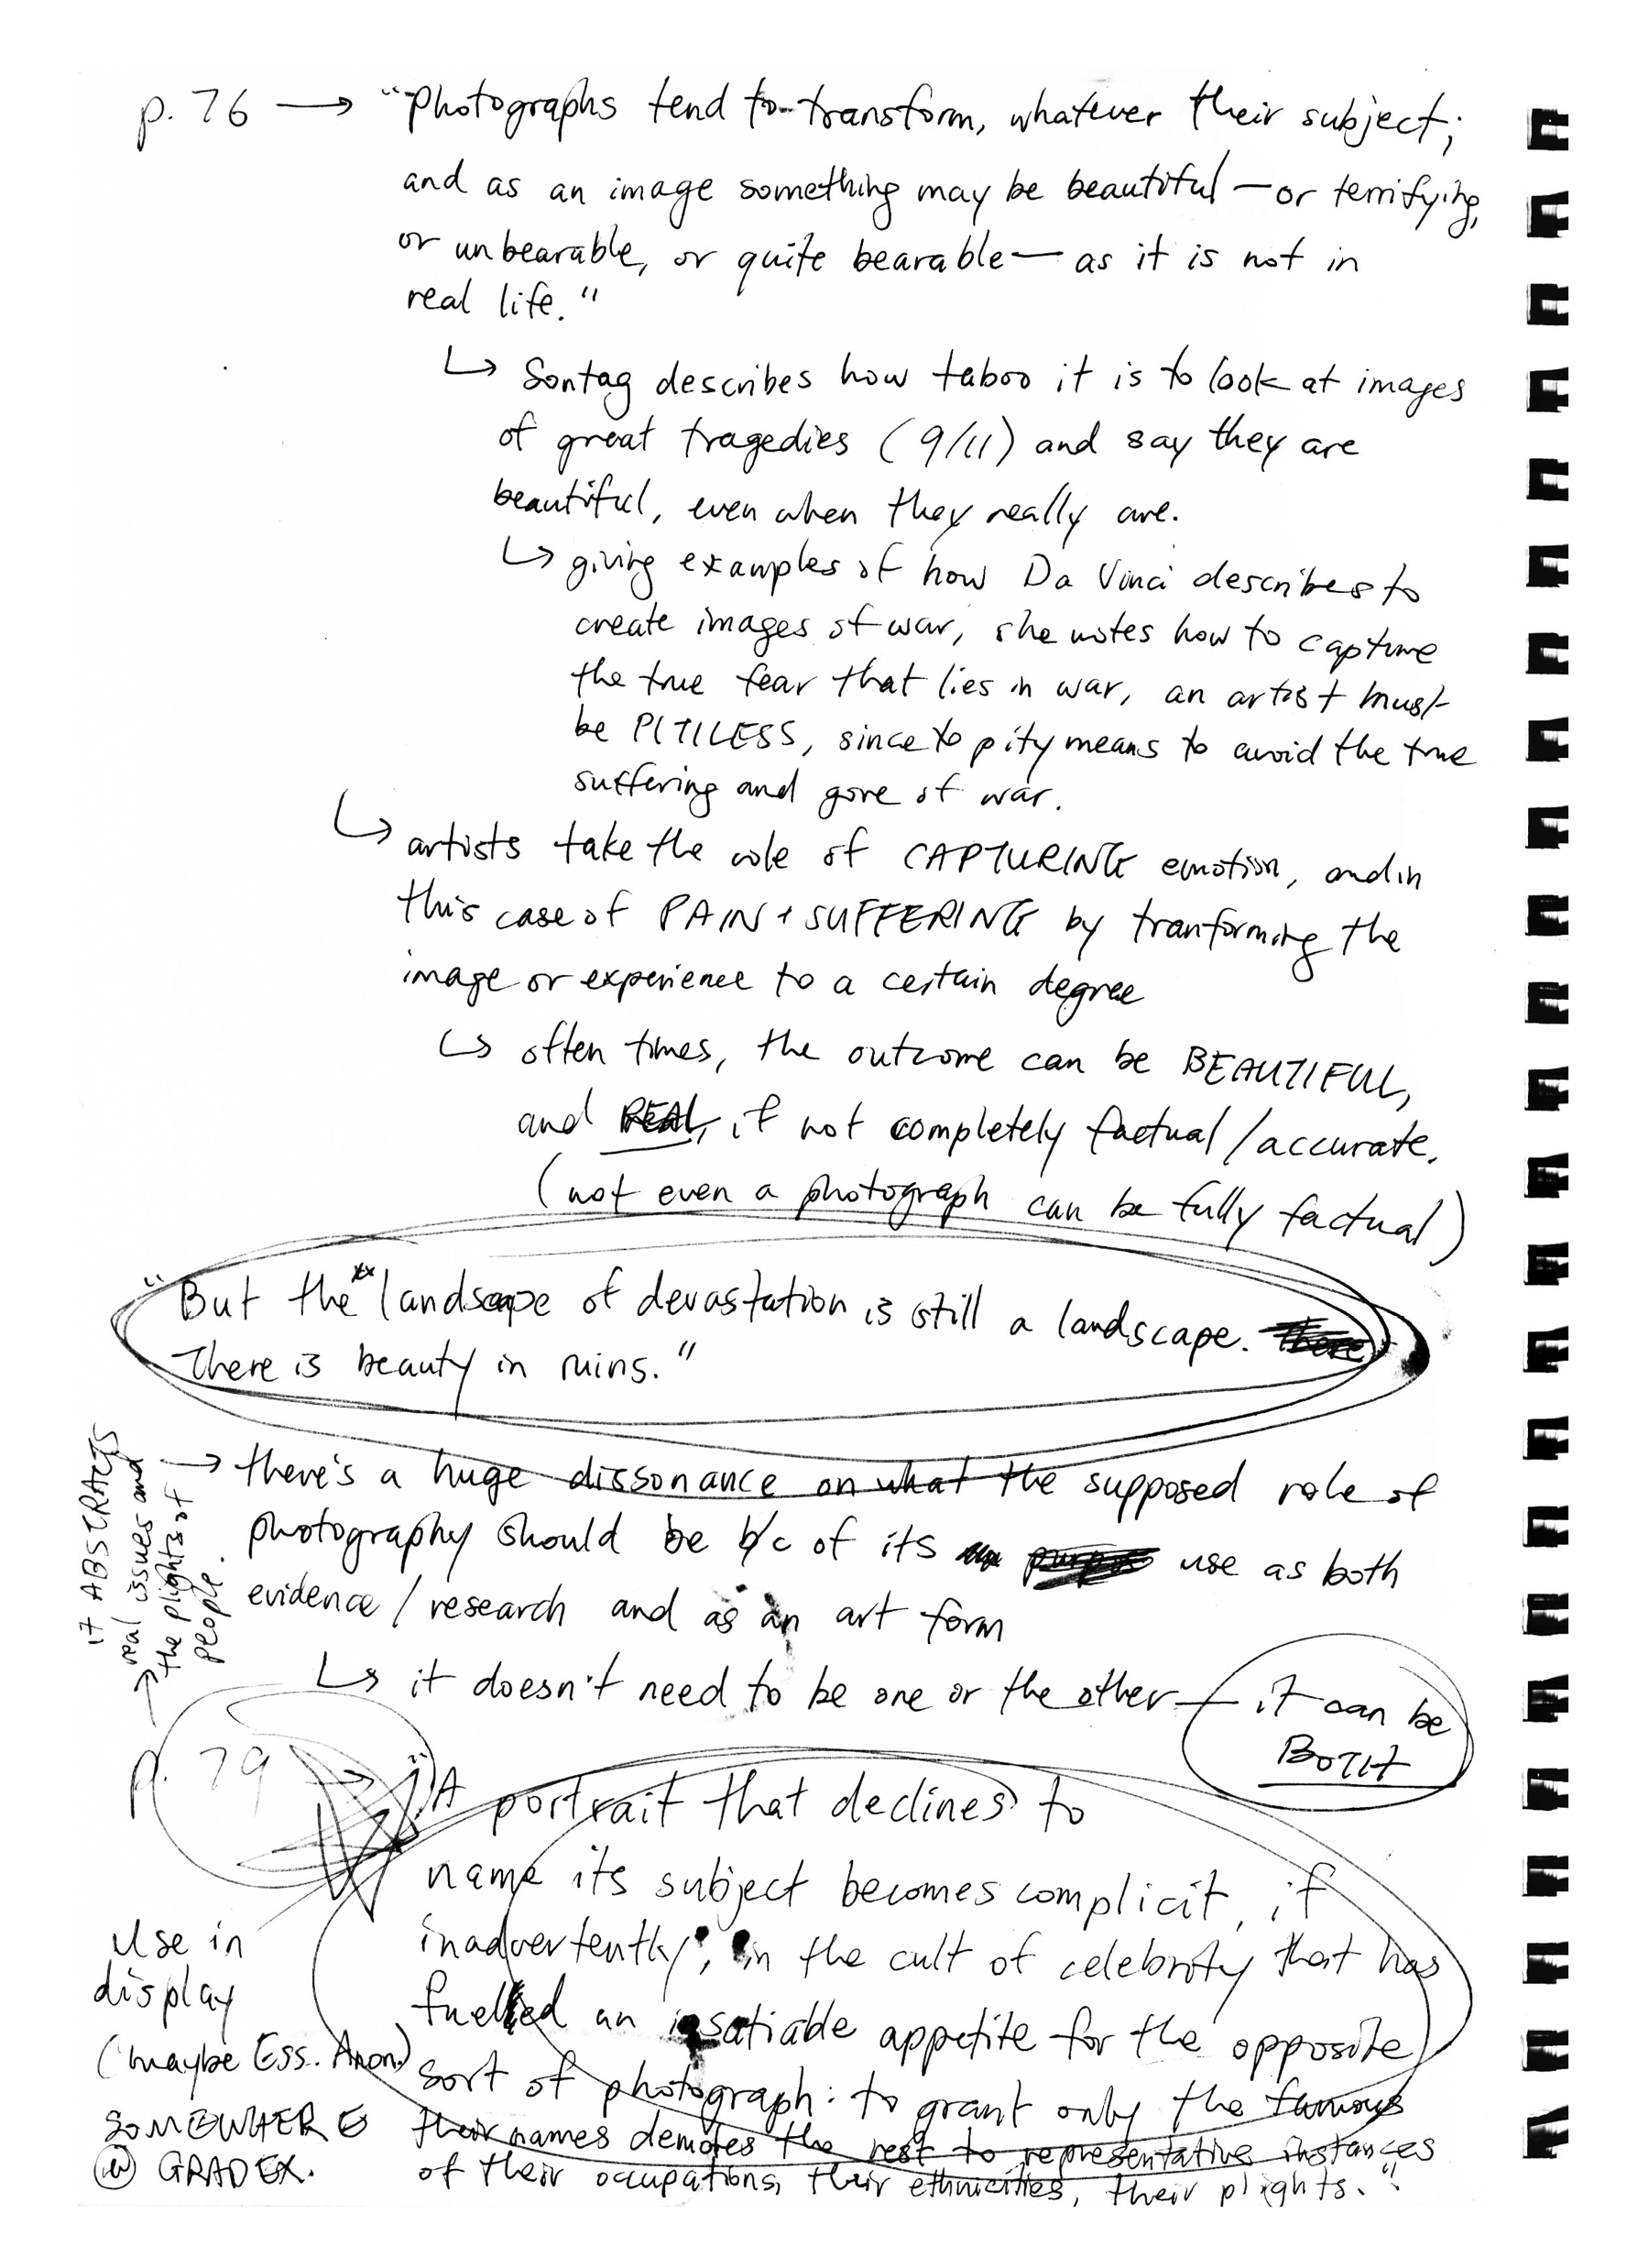 p. 76 → "Photographs tend to transform, whatever their subject;
and as an image something may be beautiful — or terrifying,
or unbearable, or quite bearable — as it is not in
real life."
↳ Sontag describes how taboo it is to look at images
of great tragedies (9/11) and say they are
beautiful, even when they really are.
↳ giving examples of how Da Vinci describes to
create images of war, she notes how to capture
the true fear that lies in war, an artist must
be PITILESS, since to pity means to avoid the true
suffering and gore of war.
↳ artists take the role of CAPTURING emotion, and in
this case of PAIN + SUFFERING by tranforming the
image or experience to a certain degree
↳ often times, the outcome can be BEAUTIFUL,
and REAL, if not completely factual/accurate.
(not even a photograph can be fully factual)
"But the landscape of devastation is still a landscape. There
There is beauty in ruins."
→ there's a huge dissonance on what the supposed role of
photography should be b/c of its purpose use as both
evidence/research and as an art form
↳ it doesn't need to be one or the other — it can be
BOTH
it ABSTRACTS
real issues and
the plights of
people.
p. 79 → "A portrait that declines to
name its subject becomes complicit, if
inadvertently, in the cult of celebrity that has
fuelled an insatiable appetite for the opposite
sort of photograph: to grant only the famous
their names demotes the rest to representative instances
of their occupations, their ethnicities, their plights."
Use in
display
(maybe Ess. Anon.)
SOMEWHERE
@ GRADEX.